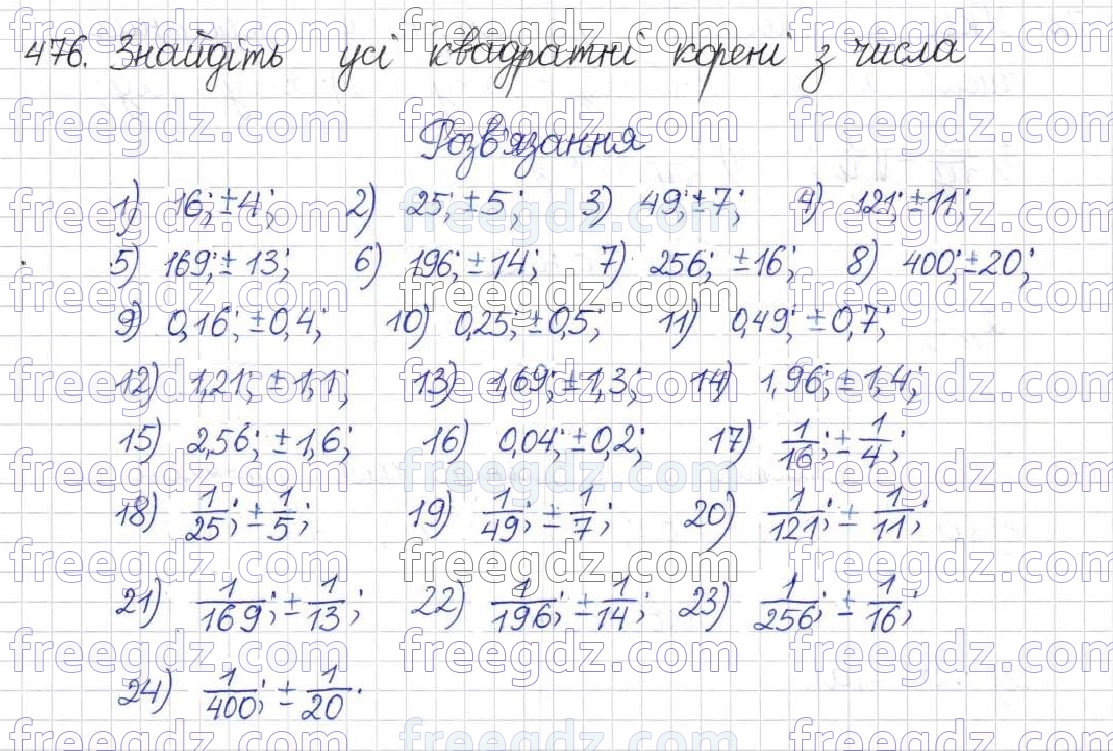 476. Знайдіть усі квадратні корені з числа
Розв'язання
1) 16; ±4; 2) 25; ±5; 3) 49; ±7; 4) 121; ±11;
5) 169; ±13; 6) 196; ±14; 7) 256; ±16; 8) 400; ±20;
9) 0,16; ±0,4; 10) 0,25; ±0,5; 11) 0,49; ±0,7;
12) 1,21; ±1,1; 13) 1,69; ±1,3; 14) 1,96; ±1,4;
15) 2,56; ±1,6; 16) 0,04; ±0,2; 17) 1/16; ±1/4;
18) 1/25; ±1/5; 19) 1/49; ±1/7; 20) 1/121; ±1/11;
21) 1/169; ±1/13; 22) 1/196; ±1/14; 23) 1/256; ±1/16;
24) 1/400; ±1/20.
freegdz.com